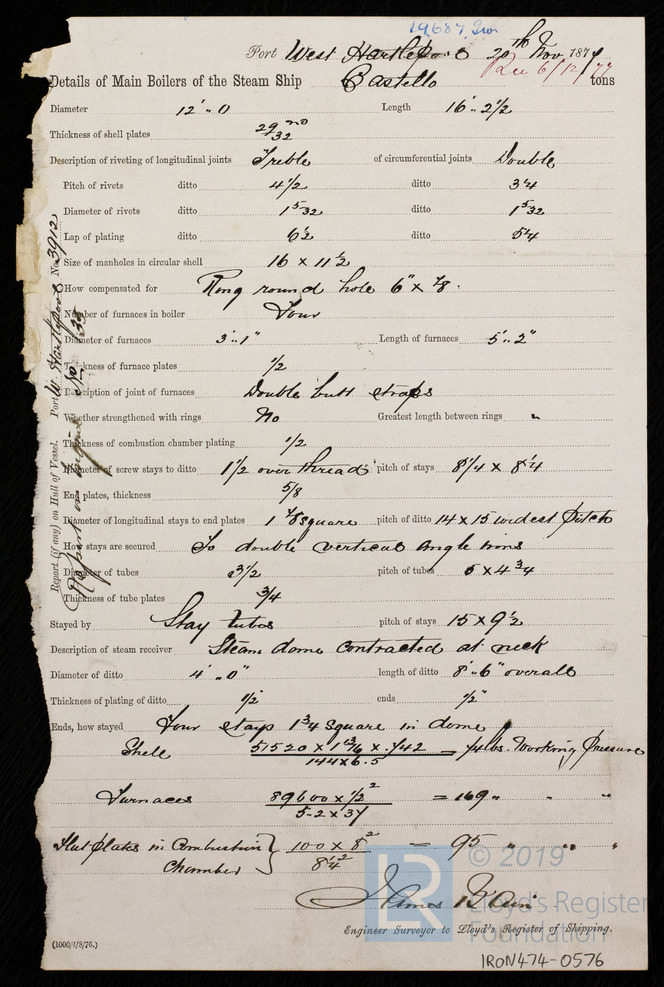 19687 Iron
Port West Hartlepool 20th Nov 1877
Rec 6/12/77
Details of Main Boilers of the Steam Ship Castello tons
Diameter 12'.. 0 Length 16'.. 2 1/2
Thickness of shell plates 29/32
Description of riveting of longitudinal joints Treble of circumferential joints Double
Pitch of rivets ditto 4 1/2 ditto 3 1/4
Diameter of rivets ditto 1 5/32 ditto 1 5/32
Lap of plating ditto 6 1/2 ditto 5 1/4
Size of manholes in circular shell 16 x 11 1/2
How compensated for Ring round hole 6" x 7/8
Number of furnaces in boiler Four
Diameter of furnaces 3'.. 1" Length of furnaces 5'.. 2"
Thickness of furnace plates 1/2
Description of joint of furnaces Double butt straps
Whether strengthened with rings No Greatest length between rings "
Thickness of combustion chamber plating 1/2
Diameter of screw stays to ditto 1 1/2 over thread pitch of stays 8 1/4 x 8 1/4
End plates, thickness 5/8
Diameter of longitudinal stays to end plates 1 7/8 square pitch of ditto 14 x 15 widest pitch
How stays are secured To double vertical angle irons
Diameter of tubes 3 1/2 pitch of tubes 5 x 4 3/4
Thickness of tube plates 3/4
Stayed by Stay tubes pitch of stays 15 x 9 1/2
Description of steam receiver Steam dome contracted at neck
Diameter of ditto 4'.. 0" length of ditto 8'.. 6" overall
Thickness of plating of ditto 1/2 ends 1/2"
Ends, how stayed Four stays 1 3/4 square in dome
Shell 51520 x 1 13/16 x .742 = 74 lbs. Working Pressure
144 x 6.5
Furnaces 89600 x 1/2² = 169 " " "
5.2 x 37
Flat plates in Combustion Chamber } 100 x 8² = 95 " " "
8 1/4²
James Bain
Engineer Surveyor to Lloyd's Register of Shipping.
(1000/3/8/76.)
Report (if any) on Hull of Vessel. Port W. Hartlepool No. 3912
Report on Engines No 33
LR
© 2019
Lloyd's Register
Foundation
IRON474-0576